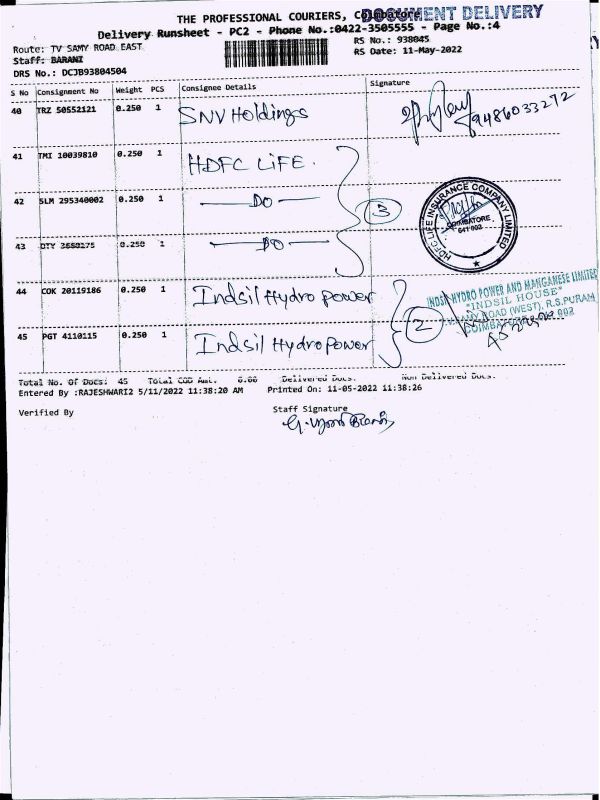 THE PROFESSIONAL COURIERS, Coimbatore
DOCUMENT DELIVERY
Delivery Runsheet - PC2 - Phone No.:0422-3505555 - Page No.:4
Route: TV SAMY ROAD EAST
RS No.: 938045
Staff: BARANI
RS Date: 11-May-2022
DRS No.: DCJB93804504
S No Consignment No Weight PCS Consignee Details Signature
40 TRZ 50552121 0.250 1 SNV Holdings 9486033272
41 TMI 10039810 0.250 1 HDFC LIFE.
42 SLM 295340002 0.250 1 —DO— 3
HDFC LIFE INSURANCE COMPANY LIMITED
COIMBATORE
641 002
43 DTY 3660175 0.250 1 —DO—
44 COK 20119186 0.250 1 Indsil Hydro power 2
INDSIL HYDRO POWER AND MANGANESE LIMITED
"INDSIL HOUSE"
SAMY ROAD (WEST), R.S.PURAM
COIMBATORE
45 PGT 4110115 0.250 1 Indsil Hydropower
Total No. Of Docs: 45 Total COD Amt. 0.00 Delivered Docs. Non Delivered Docs.
Entered By :RAJESHWARI2 5/11/2022 11:38:20 AM Printed On: 11-05-2022 11:38:26
Verified By
Staff Signature